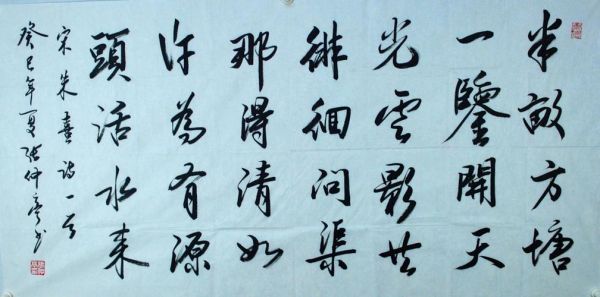 半畝方塘
一鑒開天
光雲影共
徘徊問渠
那得清如
許為有源
頭活水来
宋朱熹詩一首
癸巳年夏張仲亭书